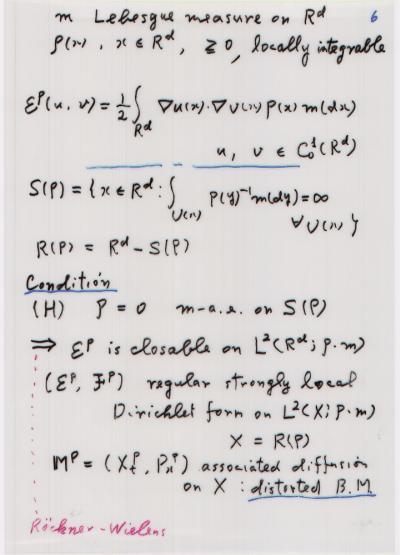 m Lebesgue measure on R^d 6
ρ(x), x ∈ R^d, ≥ 0, locally integrable
ℰ^ρ(u, v) = 1/2 ∫_{R^d} ∇u(x)·∇v(x) ρ(x) m(dx)
u, v ∈ C_0^1(R^d)
S(ρ) = { x ∈ R^d : ∫_{U(x)} ρ(y)^{-1} m(dy) = ∞
∀ U(x) }
R(ρ) = R^d - S(ρ)
Condition
(H) ρ = 0 m-a.e. on S(ρ)
⇒ ℰ^ρ is closable on L^2(R^d; ρ·m)
(ℰ^ρ, ℱ^ρ) regular strongly local
Dirichlet form on L^2(X; ρ·m)
X = R(ρ)
M^ρ = (X_t^ρ, P_x^ρ) associated diffusion
on X : distorted B.M.
Röckner-Wielens